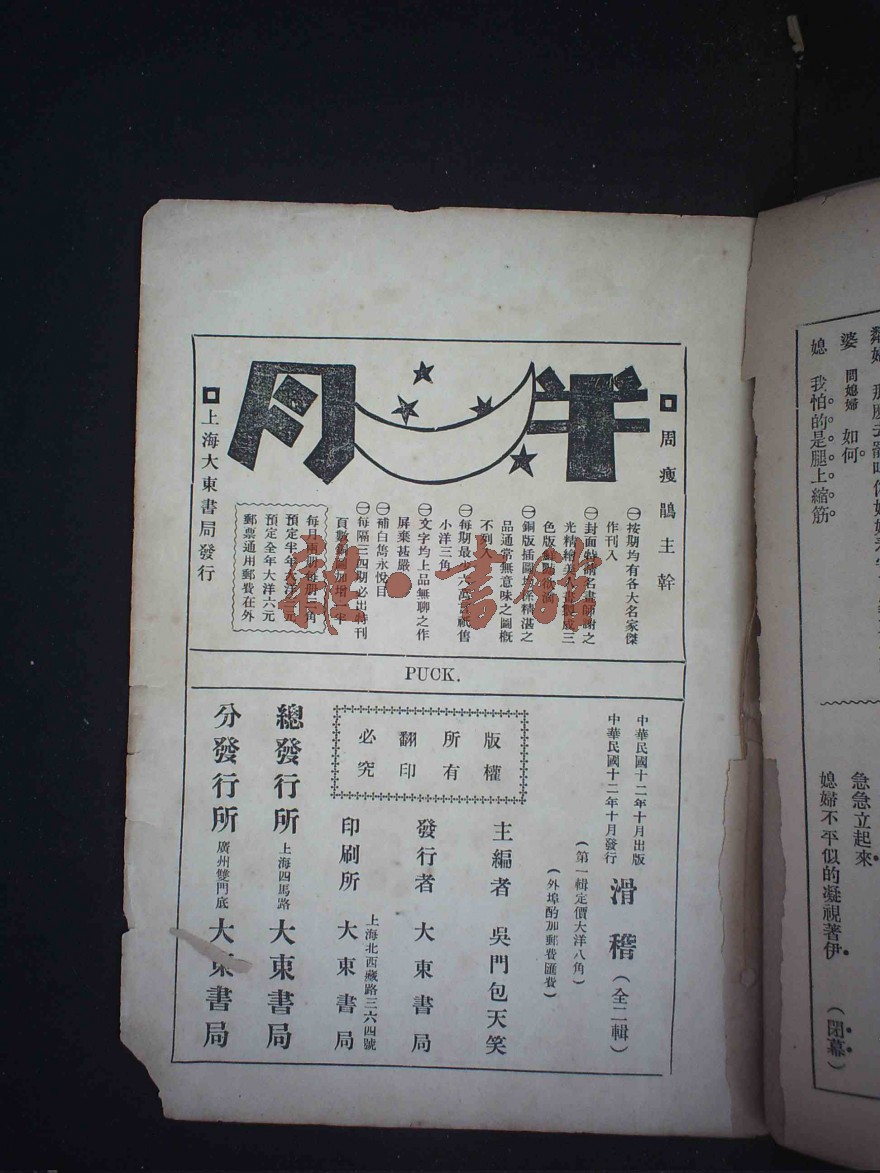 婆 問媳婦 如何。
媳 我怕的是腿上縮筋
急急立起來
媳婦不平似的凝視著伊。
（閉幕）
周瘦鵑主幹
半月
上海大東書局發行
㊀按期均有各大名家傑
作刊入
㊀封面特請名畫師謝之
光精繪美人畫製成三
色版鮮點欲滴
㊀銅版插圖均係精湛之
品通常無意味之圖概
不列入
㊀每期最 六萬言祇售
小洋三角
㊀文字均上品無聊之作
屏棄甚嚴
㊀補白雋永悅目
㊀每隔三四期必出特刊
頁數銅圖加增一半
每月兩期每期三角
預定半年大洋三元
預定全年大洋六元
郵票通用郵費在外
PUCK.
中華民國十二年十月出版
中華民國十二年十月發行
滑稽（全二輯）
（第一輯定價大洋八角）
（外埠酌加郵費匯費）
版權
所有
翻印
必究
主編者 吳門包天笑
發行者 大東書局
上海北西藏路三六四號
印刷所 大東書局
總發行所 上海四馬路 大東書局
分發行所 廣州雙門底 大東書局
雜·書館